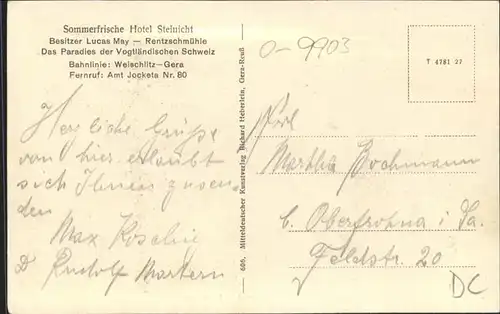 Sommerfrische Hotel Steinicht
Besitzer Lucas May — Rentzschmühle
Das Paradies der Vogtländischen Schweiz
Bahnlinie: Weischlitz—Gera
Fernruf: Amt Jocketa Nr. 80
Herzliche Grüße
von hier erlaubt
sich Ihnen zusen-
den
Max
Rudolf Martern
606. Mitteldeutscher Kunstverlag Richard Heberlein, Gera-Reuß
0-9903
T 4781 27
Frl
Martha Bochmann
b. Oberfrohna i/Sa.
Feldstr. 20
DC